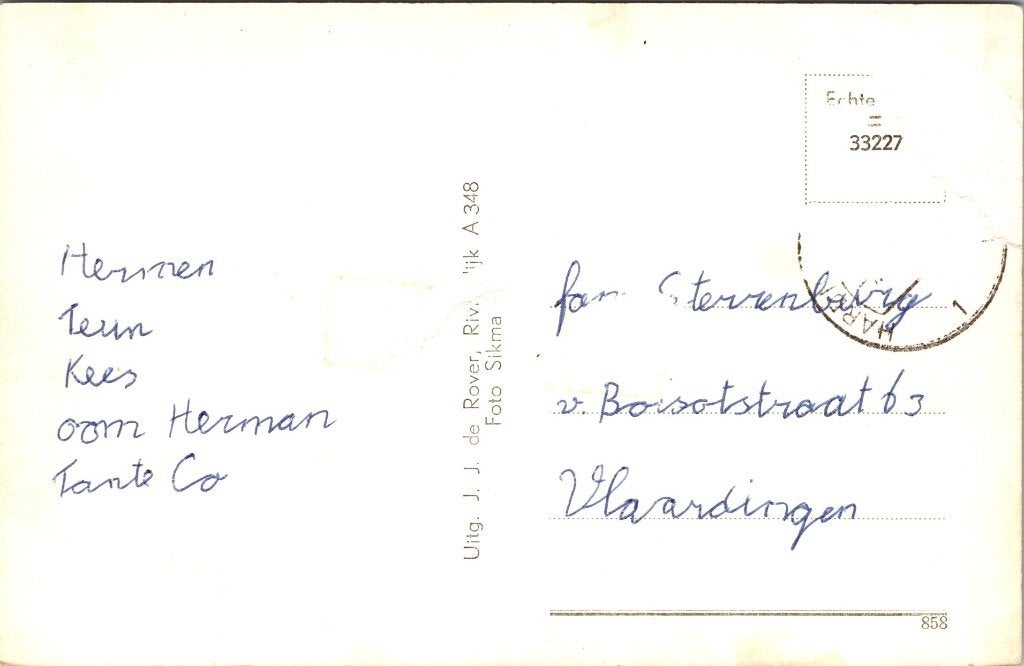 Hermen
Teun
Kees
oom Herman
Tante Co
Uitg. J. J. de Rover, A 348
Foto Sikma
Echte
33227
1
fam Sterrenburg
v. Boisotstraat 63
Vlaardingen
858